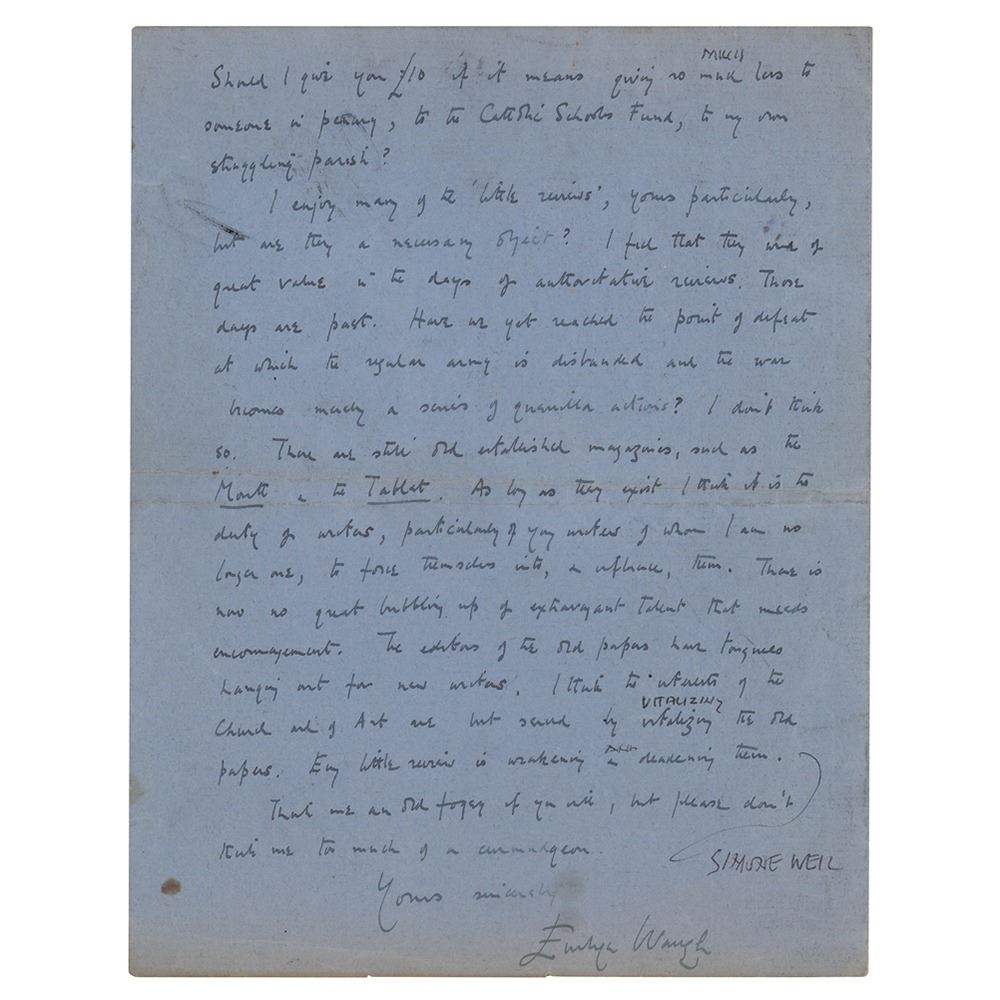 MUCH
Should I give you £10 if it means giving so much less to
someone in penury, to the Catholic Schools Fund, to my own
struggling parish?
I enjoy many of the 'little reviews', yours particularly,
but are they a necessary object? I feel that they were of
great value in the days of authoritative reviews. Those
days are past. Have we yet reached the point of defeat
at which the regular army is disbanded and the war
becomes merely a series of guerilla actions? I don't think
so. There are still old established magazines, such as the
Month & the Tablet. As long as they exist I think it is the
duty of writers, particularly of young writers of whom I am no
longer one, to force themselves into, & influence, them. There is
now no great bubbling up of extravagant talent that needs
encouragement. The editors of the old papers have tongues
hanging out for new writers. I think the interests of the
VITALIZING
Church and of Art are best served by vitalizing the old
papers. Every little review is weakening & deadening them.
Think me an old fogey if you will, but please don't
think me too much of a curmudgeon.
SIMONE WEIL
Yours sincerely
Evelyn Waugh